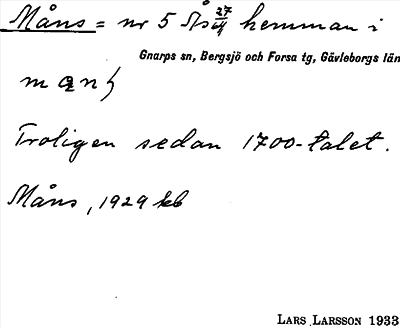 Måns = nr 5 Ås hemman i
Gnarps sn, Bergsjö och Forsa tg, Gävleborgs län
Troligen sedan 1700-talet.
Måns, 1929 kb
LARS LARSSON 1933